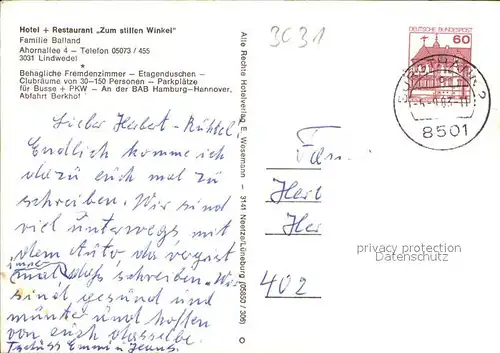 Hotel + Restaurant „Zum stillen Winkel"
Familie Balland
Ahornallee 4 – Telefon 05073 / 455
3031 Lindwedel
*
Behagliche Fremdenzimmer – Etagenduschen –
Clubräume von 30–150 Personen – Parkplätze
für Busse + PKW – An der BAB Hamburg-Hannover,
Abfahrt Berkhof
Lieber Herbert -
Endlich komme ich
dazu euch mal zu
schreiben. Wir sind
viel unterwegs mit
dem Auto da vergist
immer
mal das schreiben. Wir
sind gesund und
munter und hoffen
von euch dasselbe.
Tschüss Emmi u
Alle Rechte Hotelverlag E. Wesemann – 3141 Neetze/Lüneburg (05850 / 306)
3031
DEUTSCHE BUNDESPOST
60
8501
Fam
Her
402
privacy protection
Datenschutz